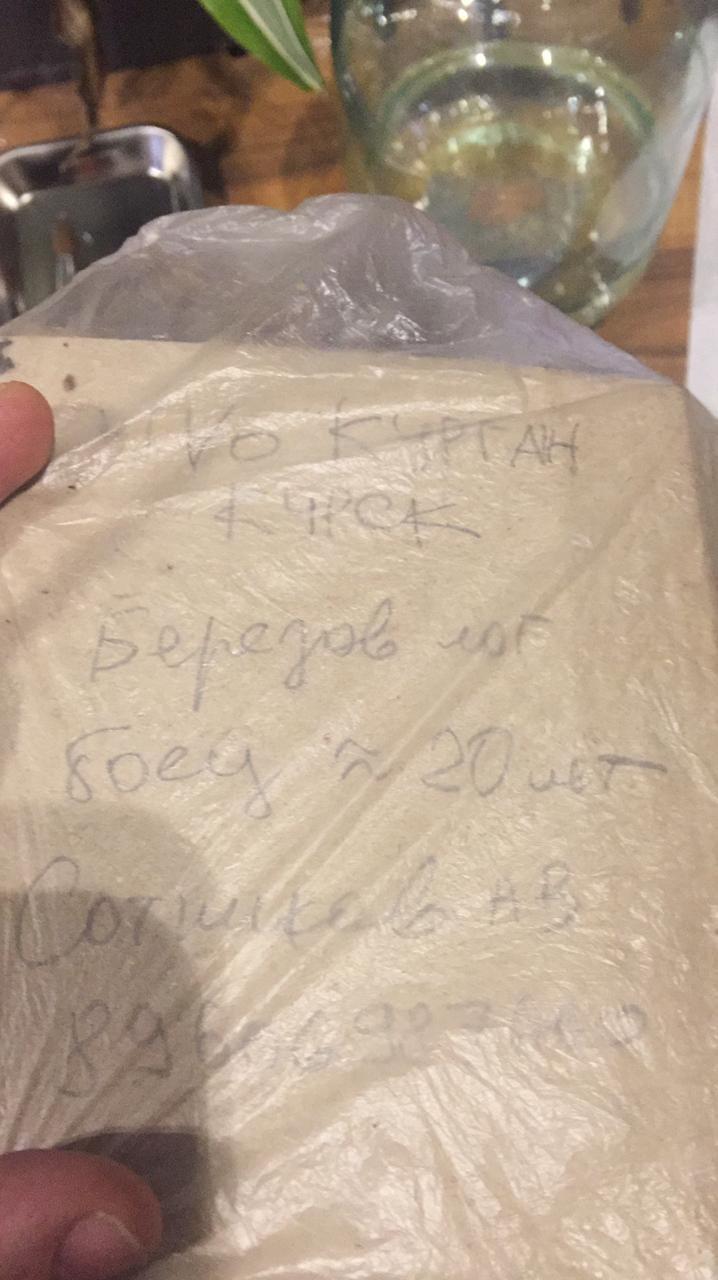 КУРГАН
КУРСК
Березов лог
боец ≈ 20 лет
Сотников АВ